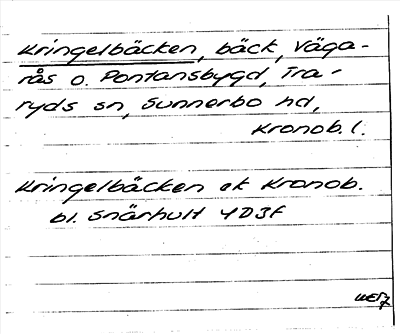 Kringelbäcken, bäck, Våga-
rås o. Pontansbygd, Tra-
ryds sn, Sunnerbo hd,
Kronob. l.
Kringelbäcken ek Kronob.
bl. Snärhult 4D3f